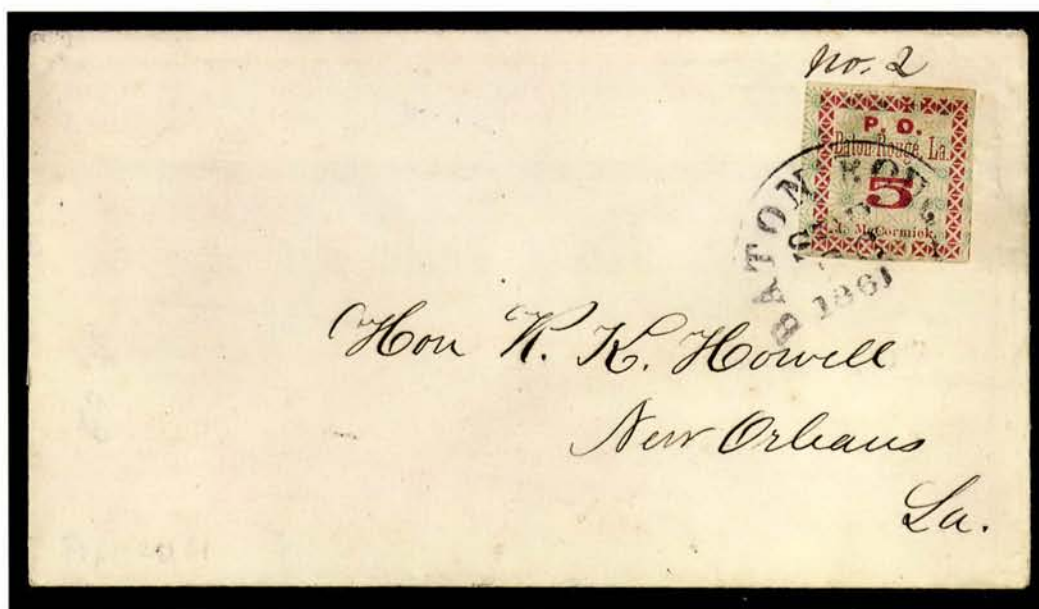 no. 2
P. O.
Baton Rouge, La.
5
McCormick.
BATON ROUG
1861
Hon R. K. Howell
New Orleans
La.